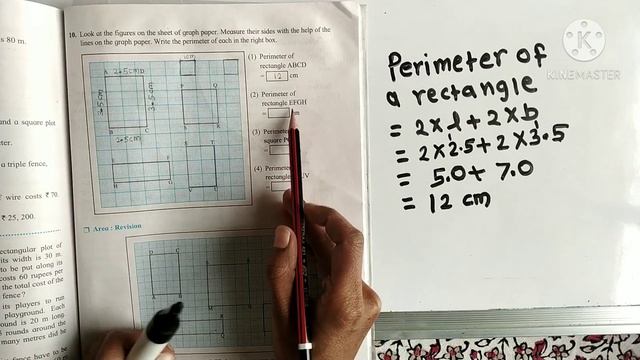 10. Look at the figures on the sheet of graph paper. Measure their sides with the help of the
lines on the graph paper. Write the perimeter of each in the right box.
A 2.5cm D
3.5cm
B C
2.5cm
1cm
P Q
S R
E
H G
S T
(1) Perimeter of
rectangle ABCD
= 12 cm
(2) Perimeter of
rectangle EFGH
= cm
(3) Perimeter
square
=
(4) Perimeter
=
Area : Revision
s 80 m.
and a square plot
eter.
a triple fence,
wire costs ₹ 70.
₹ 25, 200.
rectangular plot of
its width is 30 m.
to be put along its
costs 60 rupees per
the total cost of the
fence ?
its players to run
playground. Each
ound is 20 m long.
rounds around the
many metres did he
Perimeter of
a rectangle
= 2×l + 2×b
= 2×2.5 + 2×3.5
= 5.0 + 7.0
= 12 cm
KINEMASTER